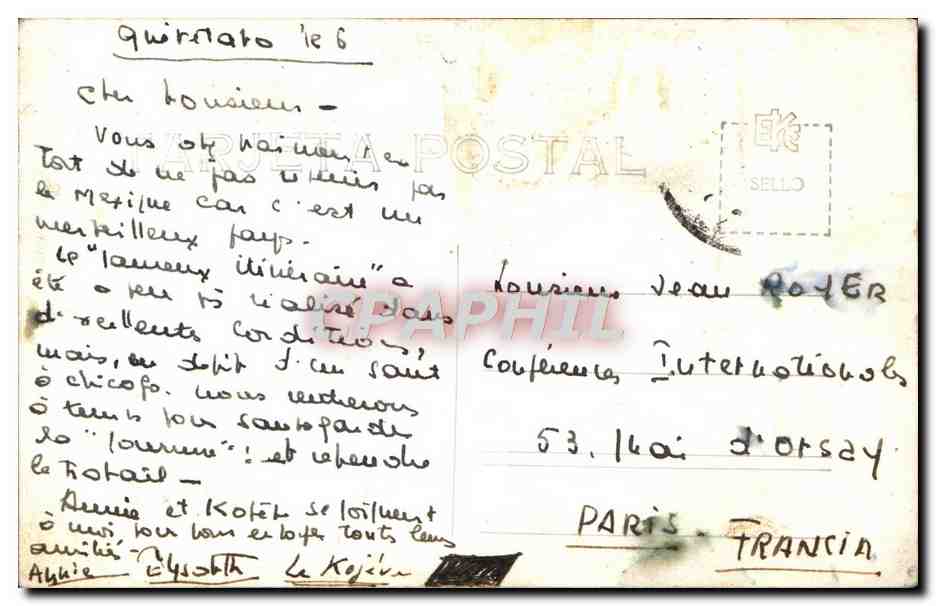 Querétaro le 6
Cher Monsieur -
TARJETA POSTAL
EKC
SELLO
Vous
tort de ne pas venir par
le Mexique car c'est un
merveilleux pays.
Le "fameux itinéraire" a
été à peu près réalisé dans
d'excellentes conditions,
mais, en dépit d'un saut
à Chicago, nous rentrerons
à temps pour sauvegarder
la " " ! et reprendre
le travail -
Annie et se joignent
à moi pour vous envoyer toutes leurs
amitiés -
Annie
CPAPHIL
Monsieur Jean ROYER
Conférences Internationales
53. Quai d'Orsay
PARIS
FRANCIA